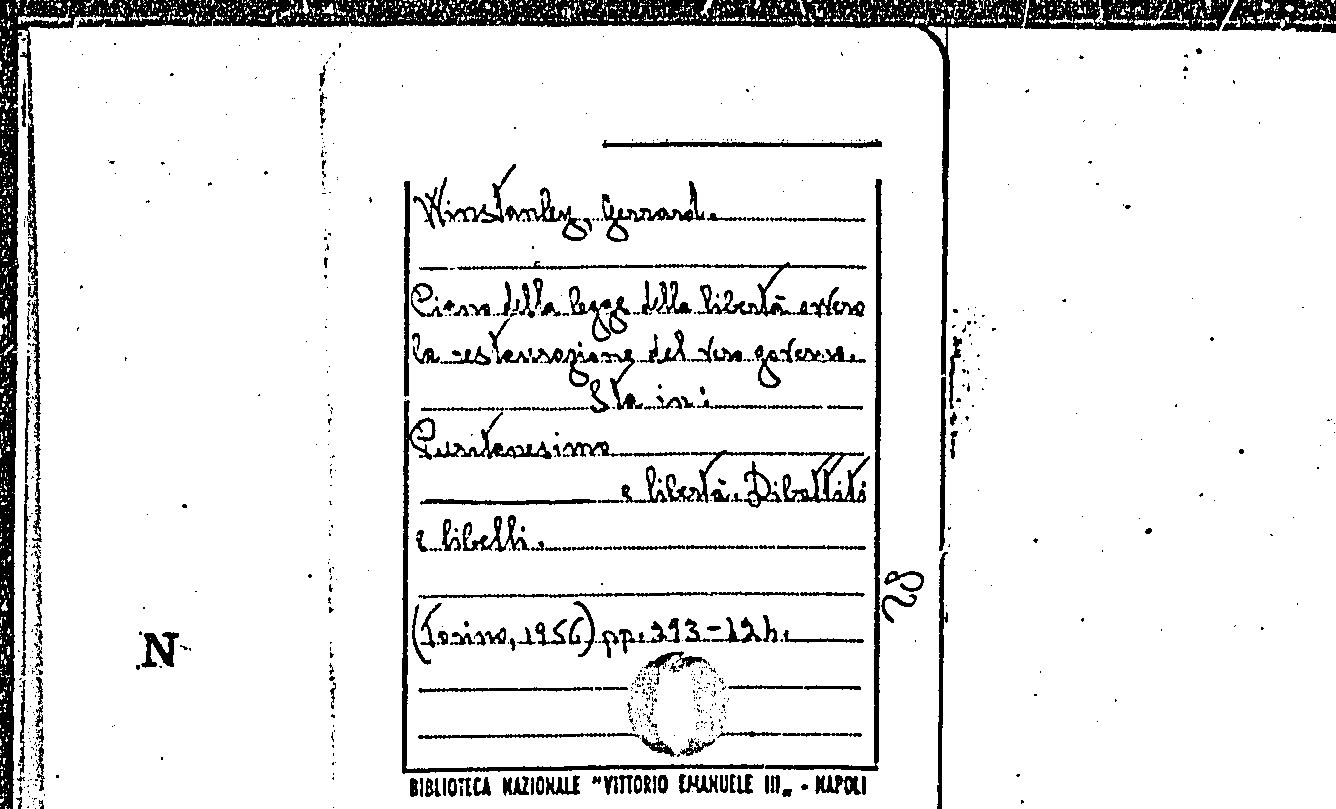 Winstanley, Gerrard.
Piano della legge della libertà ovvero
la restaurazione del vero governo.
Sta in:
Puritanesimo
e libertà. Dibattiti
e libelli.
(Torino, 1956) pp. 393-
N
BIBLIOTECA NAZIONALE "VITTORIO EMANUELE III„ - NAPOLI